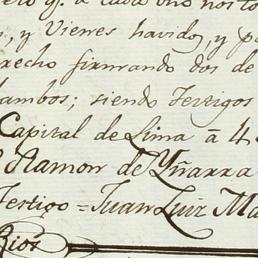 q.ᵉ a cada uno nos to
, y Vienes havidos, y p
recho firmando dos de
ambos; siendo Testigos
Capital de Lima á 4
Ramon de Yñarra
Testigo = Juan Luiz Ma
Rios